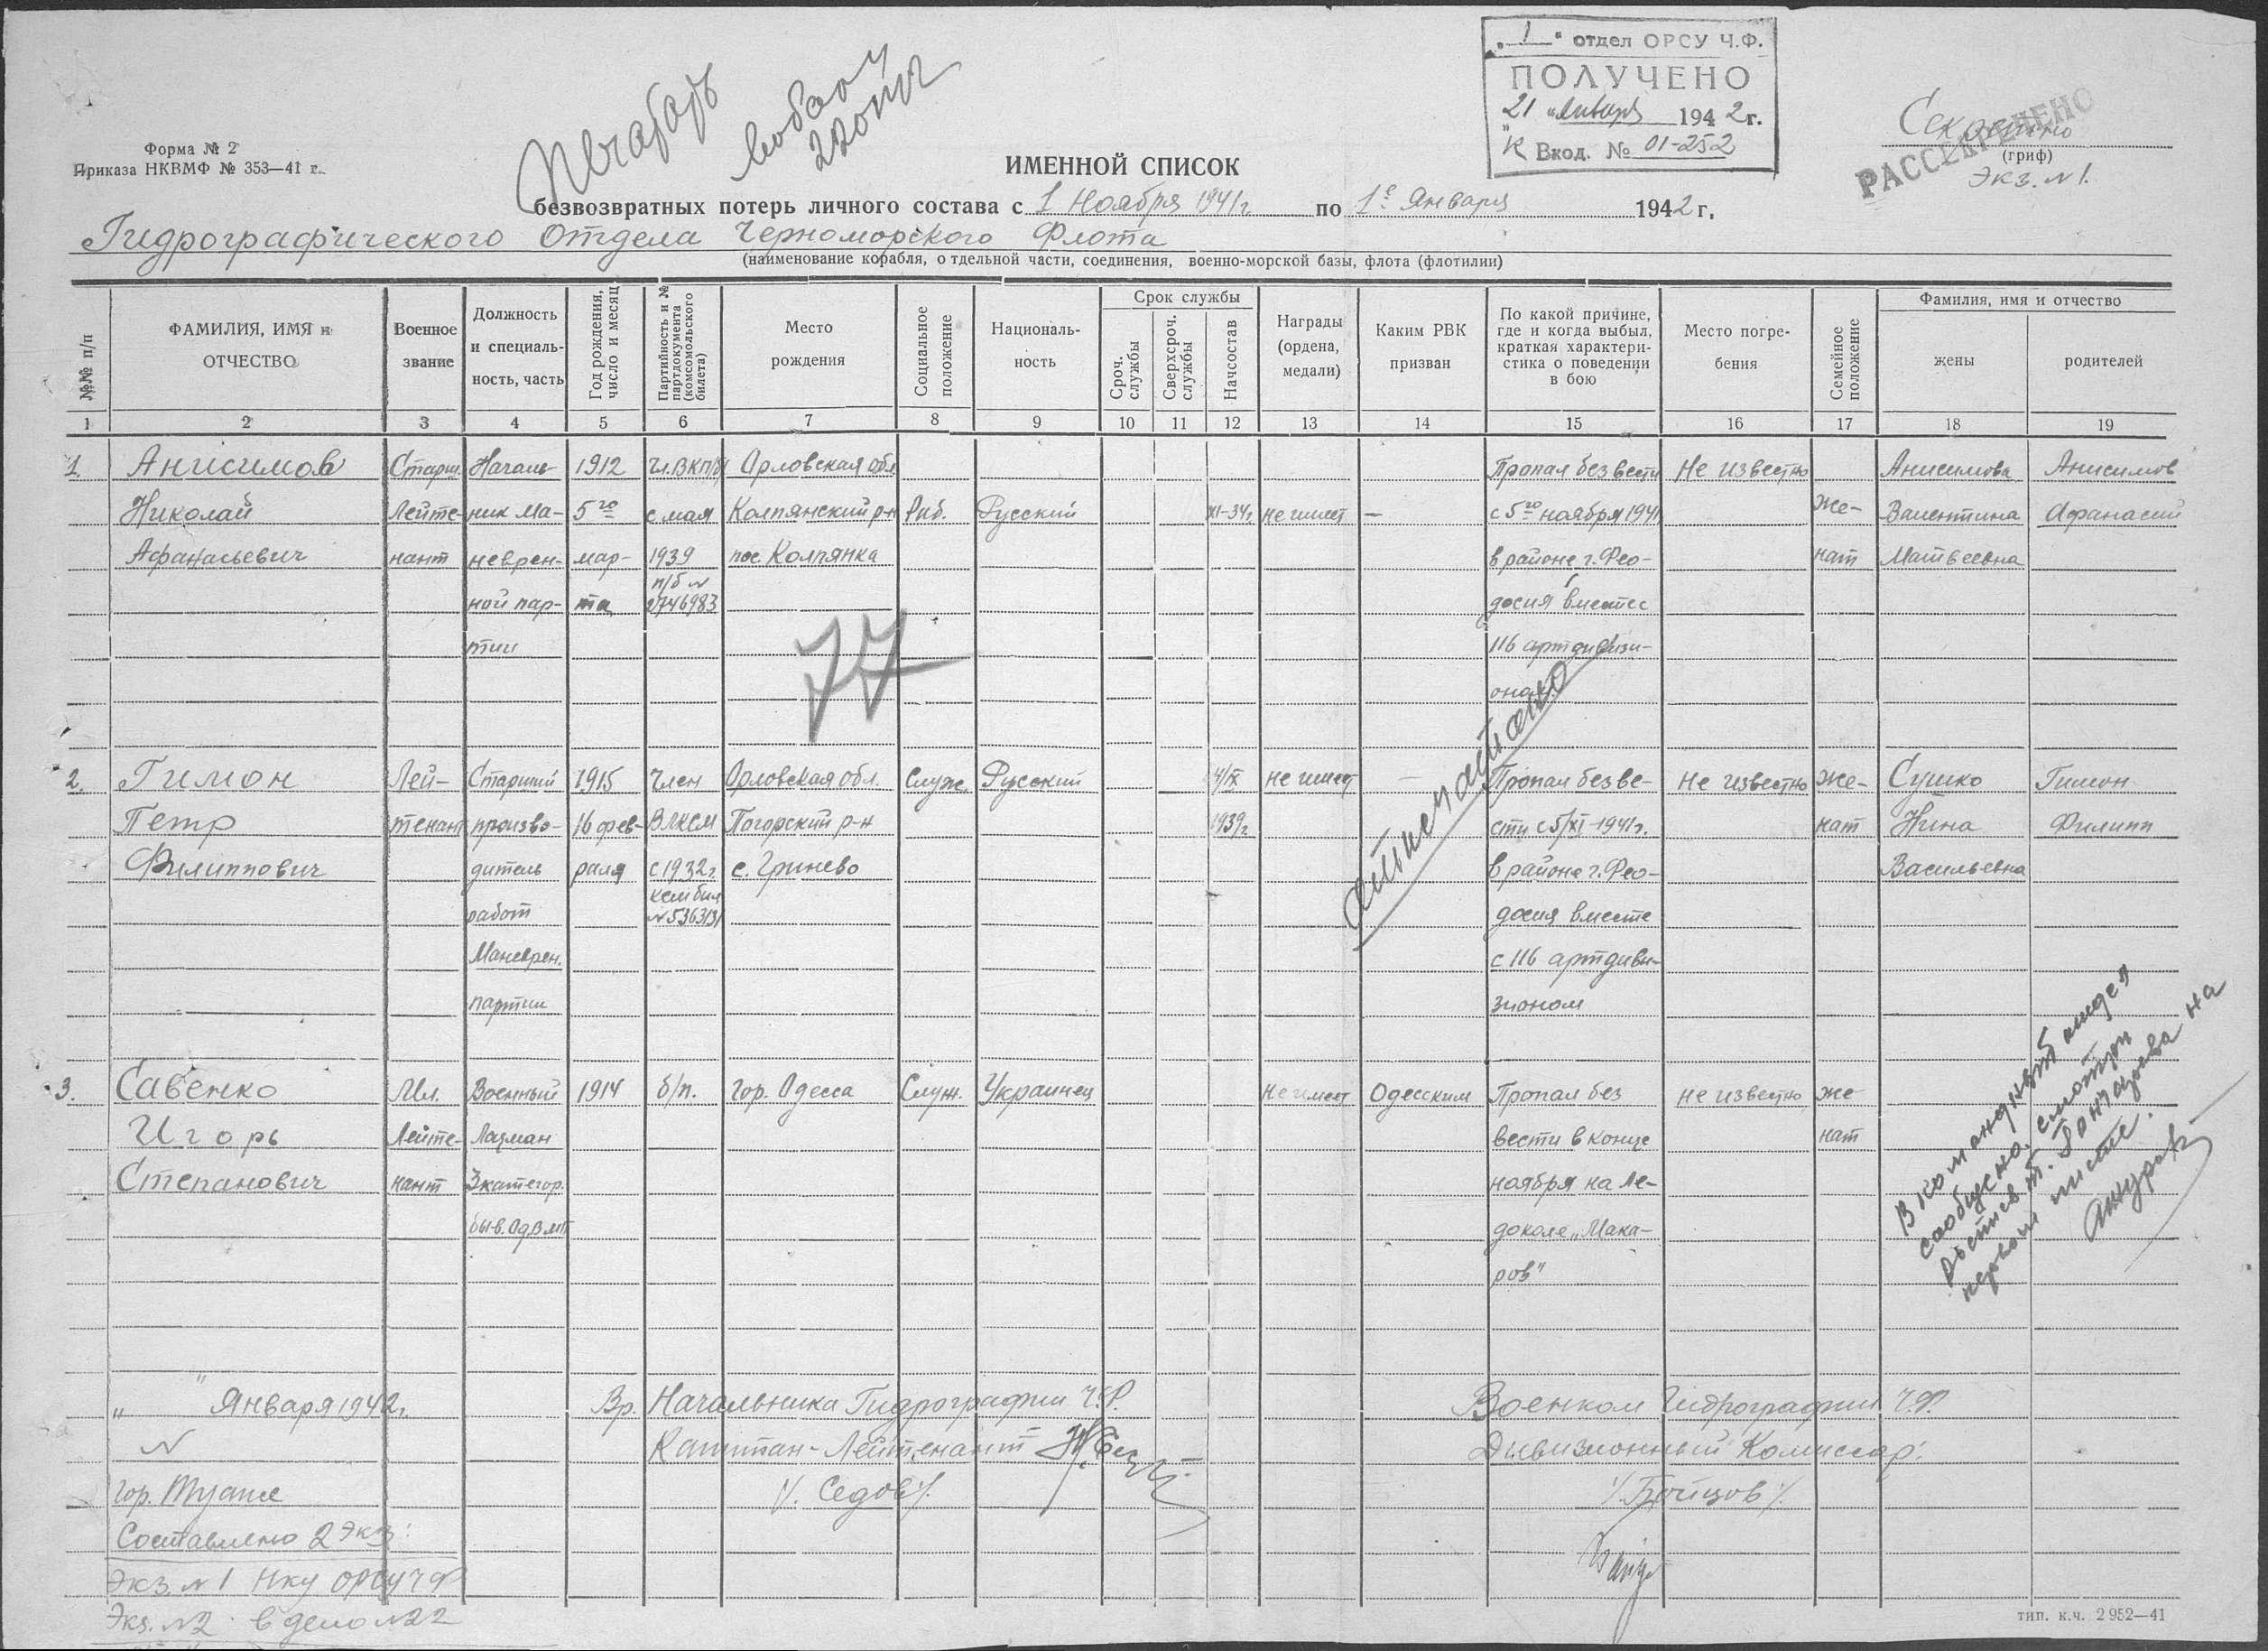 „ 1 “ отдел ОРСУ Ч.Ф.
ПОЛУЧЕНО
21 января 1942 г.
Вход. № 01-252
Секретно
РАССЕКРЕЧЕНО
(гриф)
Экз. №1.
Форма № 2
Приказа НКВМФ № 353—41 г.
ИМЕННОЙ СПИСОК
безвозвратных потерь личного состава с 1 Ноября 1941г. по 1е Января 1942 г.
Гидрографического Отдела Черноморского Флота
(наименование корабля, отдельной части, соединения, военно-морской базы, флота (флотилии)
№№ п/п
ФАМИЛИЯ, ИМЯ и ОТЧЕСТВО
Военное звание
Должность и специальность, часть
Год рождения, число и месяц
Партийность и № партдокумента (комсомольского билета)
Место рождения
Социальное положение
Националь-ность
Срок службы
Сроч. службы
Сверхсроч. службы
Начсостав
Награды (ордена, медали)
Каким РВК призван
По какой причине, где и когда выбыл, краткая характери-стика о поведении в бою
Место погре-бения
Семейное положение
Фамилия, имя и отчество
жены
родителей
1 2 3 4 5 6 7 8 9 10 11 12 13 14 15 16 17 18 19
1. Анисимов Старш. Началь- 1912 Чл.ВКП/б/ Орловская обл. Пропал без вести Не известно Анисимова Анисимов
Николай Лейте- ник Ма- 5го с мая Колпянский р-н Раб. Русский XI-34г. не имеет — с 5го ноября 1941 Же- Валентина Афанасий
Афанасьевич нант неврен- мар- 1939 пос. Колпянка в районе г. Фео- нат Матвеевна
ной пар- та п/б № 2746983 досия вместе
тии 116 артдивизи-
она
77
отпечатано
2. Гимон Лей- Старший 1915 Член Орловская обл. Служ. Русский 4/IX не имеет — Пропал безве- Не известно Же- Сушко Гимон
Петр тенант произво- 16 фев- ВЛКСМ Погорский р-н 1939г. сти с 5/XI-1941г. нат Нина Филипп
Филиппович дитель раля с 1932г. с. Гринево в районе г. Фео- Васильевна
работ досия вместе
Маневрен. с 116 артдиви-
партии зионом
3. Савенко Мл. Военный 1914 б/п. гор. Одесса Служ. Украинец Не имеет Одесским Пропал без не известно же
Игорь Лейте- Лоцман вести в конце нат
Степанович нант 3 категор. ноября на Ле-
доколе „Мака-
ров“
В командный отдел
сообщено, смотри
на
первом листе.
„ “ Января 1942г. Вр. Начальника Гидрографии Ч.Ф. Военком Гидрографии Ч.Ф.
№ Капитан-Лейтенант Дивизионный Комиссар:
гор. Туапсе /. Седов/. /. Бойцов/.
Составлено 2 экз:
Экз. №1 Нку ОРСУ ЧФ
Экз. №2 в дело №22
тип. к.ч. 2952—41